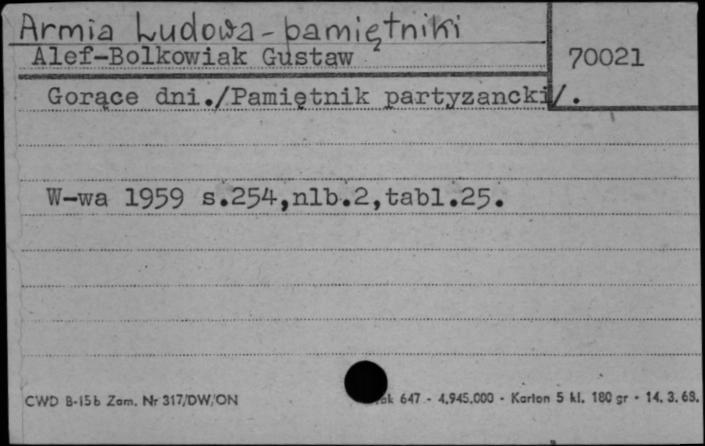 Armia Ludowa - pamiętniki
Alef-Bolkowiak Gustaw
70021
Gorące dni./Pamiętnik partyzancki/.
W-wa 1959 s.254,nlb.2,tabl.25.
CWD B-15b Zam. Nr 317/DW/ON
647 - 4.945.000 - Karton 5 kl. 180 gr - 14. 3. 68.